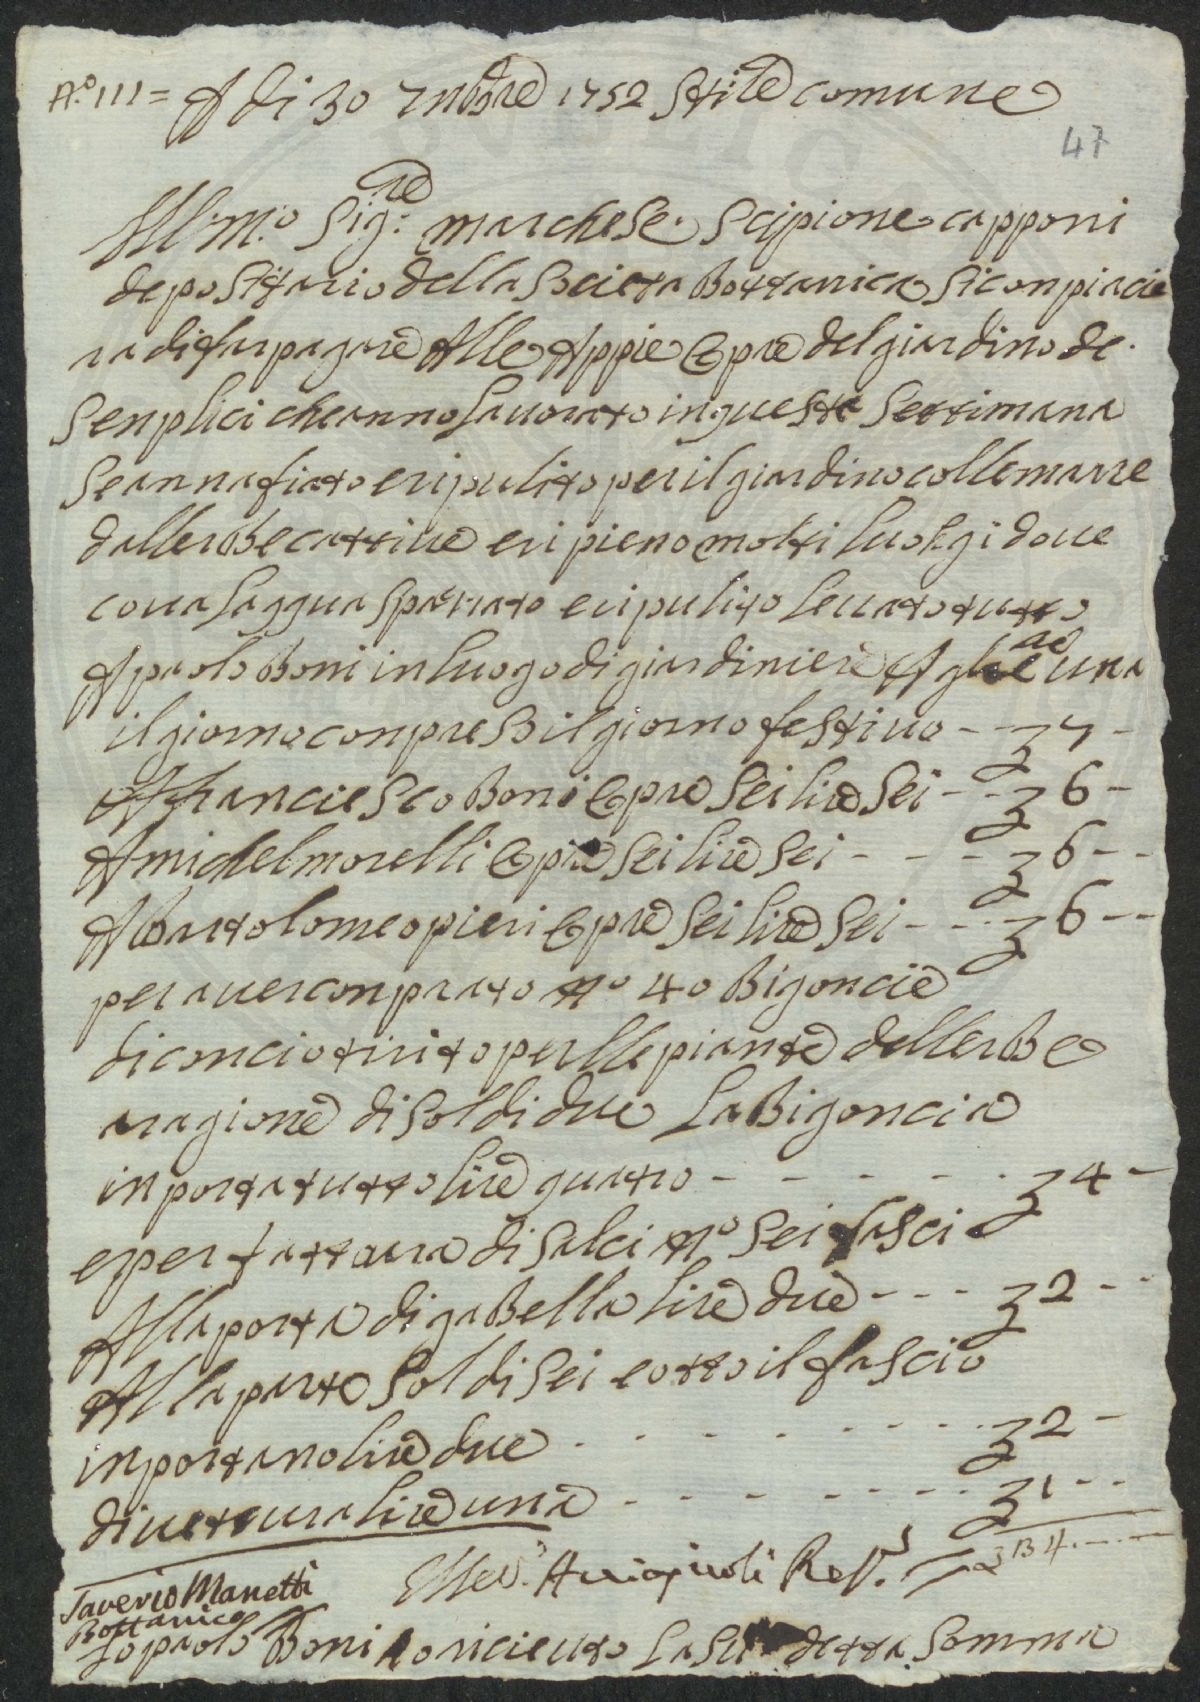 A.º 111 = A di 30 7mbre 1752 Stile comune
47
Ill:m.º Sig:re marchese Scipione capponi
depositario della Societa Bottanica si conpiacie
ra di far pagare Alle Appie Opre del giardino de
Senplici che anno lavorato in questa Settimana
Se annafiato e ripulito per il giardino colle marre
dallerBe cattive e ri pieno molti luoEgi dove
cova laqqua e ripulito levato tutto
A paolo Boni in luogo di giardiniere A una
il giorno conpreso il giorno festivo - - ʒ 7 -
A Franciesco Boni Opre Sei lire Sei - - ʒ 6 -
A michel morelli Opre sei lire Sei - - - - ʒ 6 - -
A Bartolomeo pieri Opre Sei lire Sei - - - ʒ 6 - -
per aver conprato nº 40 Bigoncie
di concio tirito per lle piante dellerBe
a ragione di soldi due La Bigoncia
inporta tutto lire quatro - - - - - - ʒ 4 -
e per fattura di Salci nº Sei fasci
Alla porta di gaBella lire due - - - ʒ 2 - -
Alla parte Soldi Sei e otto il fascio
inportano lire due - - - - - - - - ʒ 2 -
di vetura lire una - - - - - - - - ʒ 1 - -
ʒ 34. - . -
Saverio Manetti
Bottanico
Io paolo Boni o riceuto La Su detta Somma